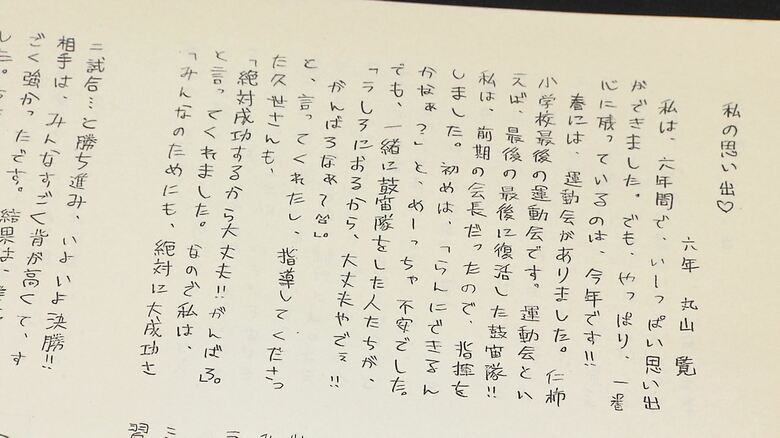 私の思い出♡
六年 丸山 覧
私は、六年間で、いーっぱい思い出
ができました。でも、やっぱり、一番
心に残っているのは、今年です!!
春には、運動会がありました。仁柿
小学校最後の運動会です。運動会とい
えば、最後の最後に復活した鼓笛隊!!
私は、前期の会長だったので、指揮を
しました。初めは、「らんにできるん
かなぁ?」と、めーっちゃ不安でした。
でも、一緒に鼓笛隊をした人たちが、
「うしろにおるから、大丈夫やでぇ!!
がんばろなぁ
と、言ってくれたし、指導してくださっ
た久世さんも、
「絶対成功するから大丈夫!!がんばろ。」
と言ってくれました。なので私は、
「みんなのためにも、絶対に大成功さ
二試合…と勝ち進み、いよいよ決勝!!
相手は、みんなすごく背が高くて、す
ごく強かったです。結果は、
した。
習